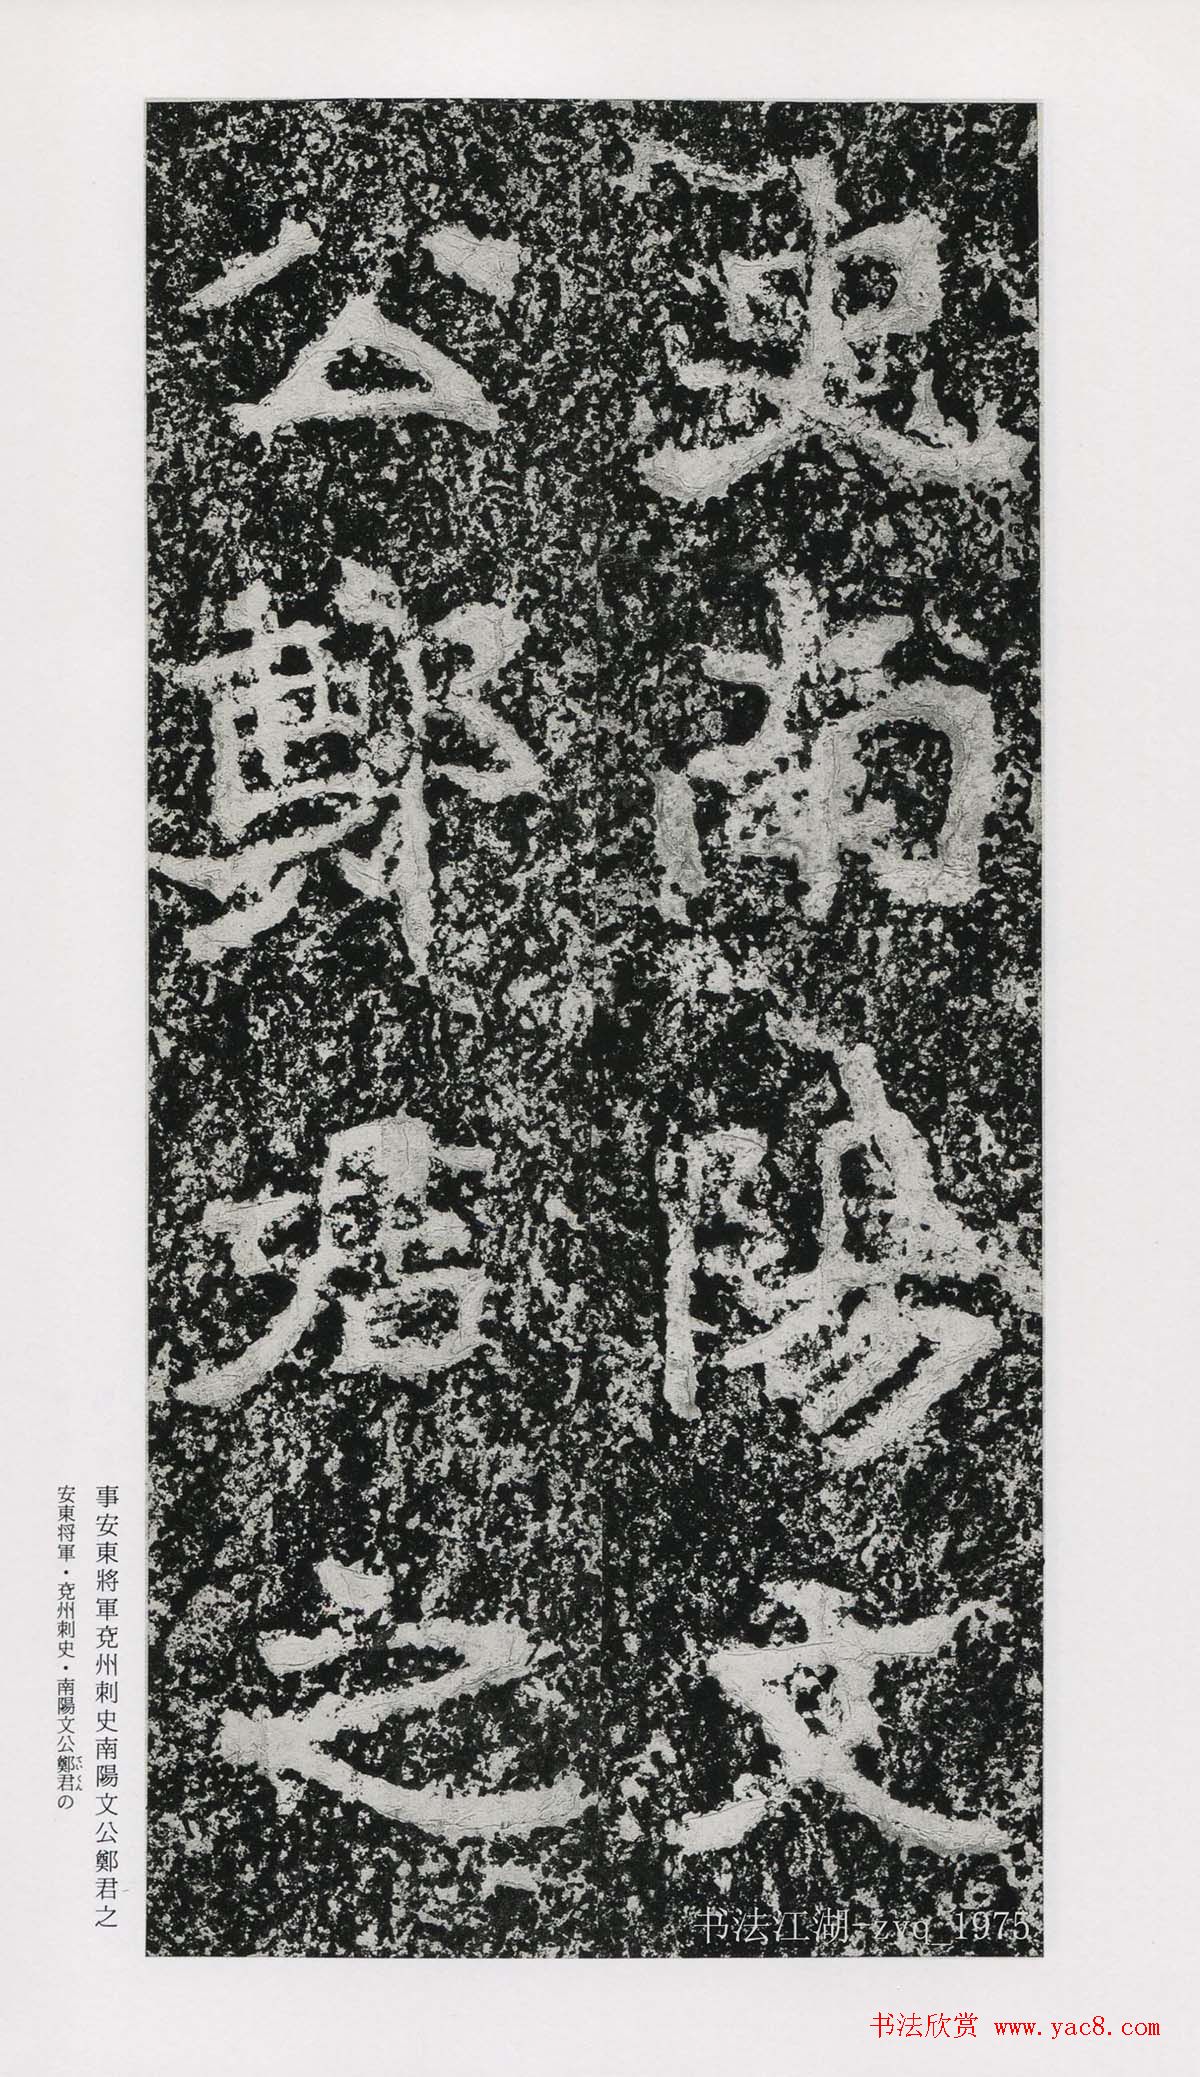 史南陽文
公鄭君之
事安東將軍兗州刺史南陽文公鄭君之
安東将軍・兗州刺史・南陽文公鄭君の
ていくん
书法江湖-zyq_1975
书法欣赏 www.yac8.com